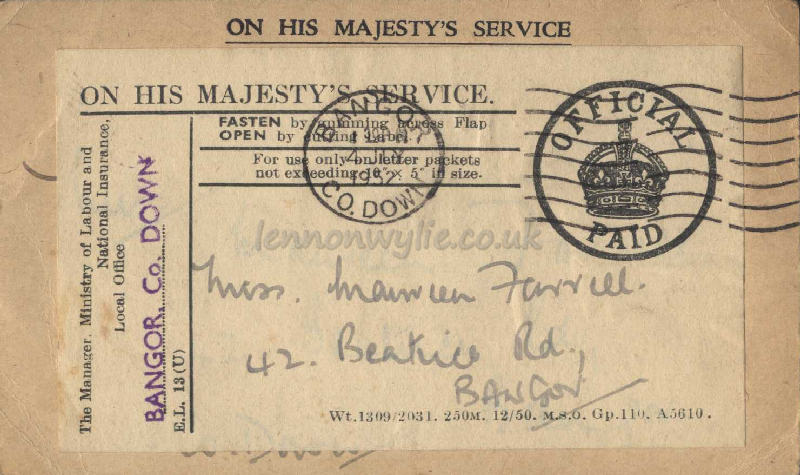 ON HIS MAJESTY'S SERVICE
ON HIS MAJESTY'S SERVICE.
FASTEN by gumming across Flap
OPEN by cutting Label.
For use only on letter packets
not exceeding 10" × 5" in size.
BANGOR
1952
CO. DOWN
OFFICIAL
PAID
The Manager, Ministry of Labour and
National Insurance,
Local Office
BANGOR, Co. DOWN
E.L. 13 (U)
lennonwylie.co.uk
Miss. Maureen Farrell.
42. Beatrice Rd.,
BANGOR
Wt.1309/2031. 250M. 12/50. M.S.O. Gp.110. A5610.